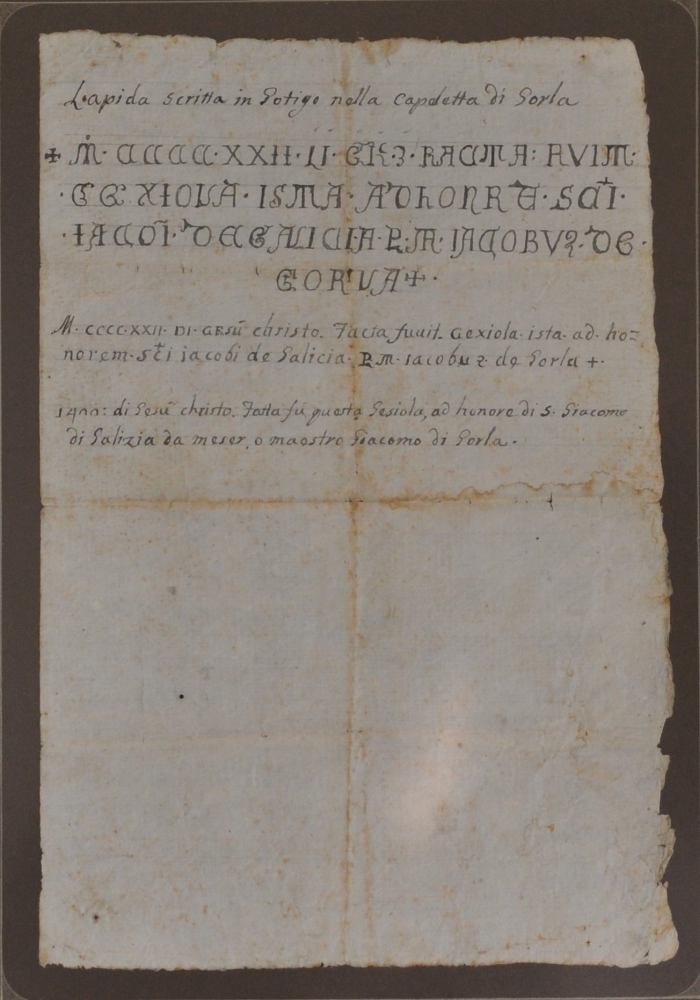 Lapida scritta in Gotigo nella Capeletta di Gorla
✠ M· CCCC·XXII· LI· EK·3· RACTA: AVIM·
·GEXIOLA· ISTA· ADHONRE· SCI·
·IACOI· DEGALICIA· P·M· IACOBVS· DE·
GORLA ✠·
M· CCCC·XXII· DI· GESÙ christo. Facta fuuit. Gexiola· ista· ad· ho=
norem· Sti jacobi de Galicia· P·M· iacobuz· de Gorla +·
di Gesù christo. Fatta fù questa Gesiola, ad honore di S· Giacomo
di Galizia da meser, o maestro Giacomo di Gorla.